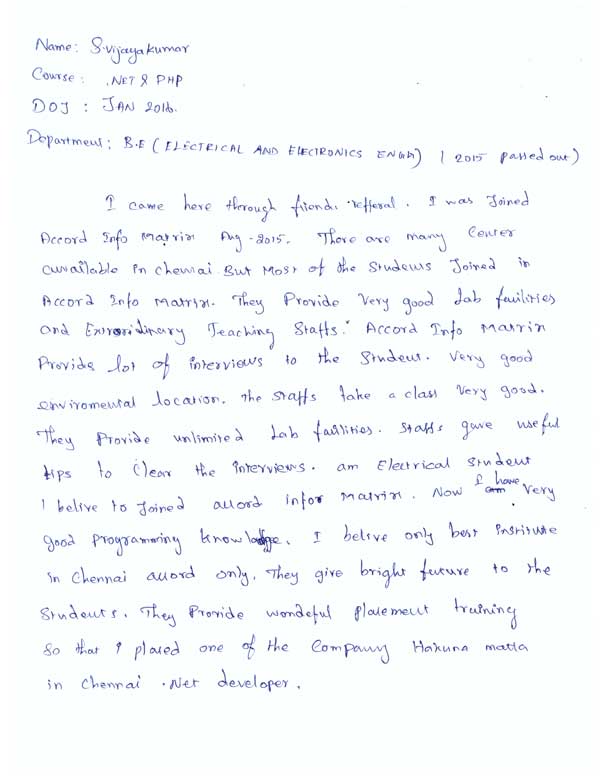 Name: S.vijayakumar
Course: .NET & PHP
DOJ : JAN 2016.
Department: B.E (ELECTRICAL AND ELECTRONICS ENGG) (2015 passed out)
I came here through friends refferal. I was Joined
Accord Info Matrix Aug-2015. There are many Center
avuailable in chennai But Most of the Students Joined in
Accord Info Matrix. They Provide Very good Lab facilities
and Extraoridinary Teaching Staffs. Accord Info Matrix
Provide lot of interviews to the Student. Very good
enviromental location. the staffs take a class Very good.
They Provide unlimited Lab facilities. Staffs gave useful
tips to Clear the interviews. am Electrical Student
I belive to Joined accord infor Matrix. Now I have Very
good Programming knowladge. I belive only best institute
in Chennai accord only. They give bright future to the
Students. They Provide wondeful Placement training
So that I placed one of the Company Hakuna matta
in Chennai .Net developer.